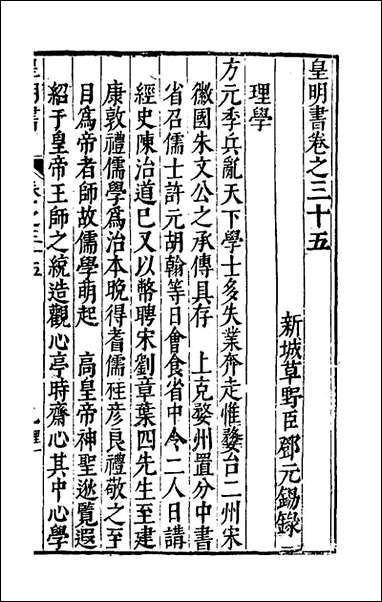 皇明書卷之三十五
新城草野臣鄧元錫錄
理學
方元季兵亂天下學士多失業奔走惟婺台二州宋
徽國朱文公之承傳具存　上克婺州置分中書
省召儒士許元胡翰等日會食省中令二人日講
經史陳治道已又以幣聘宋劉章葉四先生至建
康敦禮儒學爲治本晚得耆儒桂彦良禮敬之至
目爲帝者師故儒學萌起　高皇帝神聖逖覽遐
紹于皇帝王師之統造觀心亭時齋心其中心學
皇明書